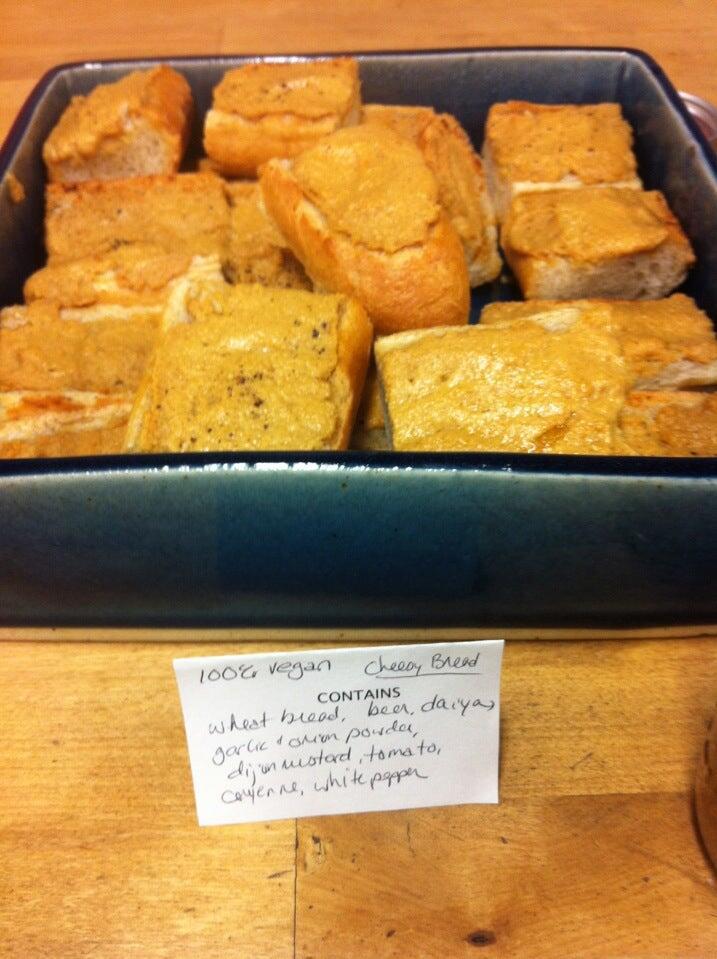 100% vegan Cheesy Bread
CONTAINS
wheat bread, beer, daiya,
garlic + onion powder,
dijon mustard, tomato,
cayenne, white pepper